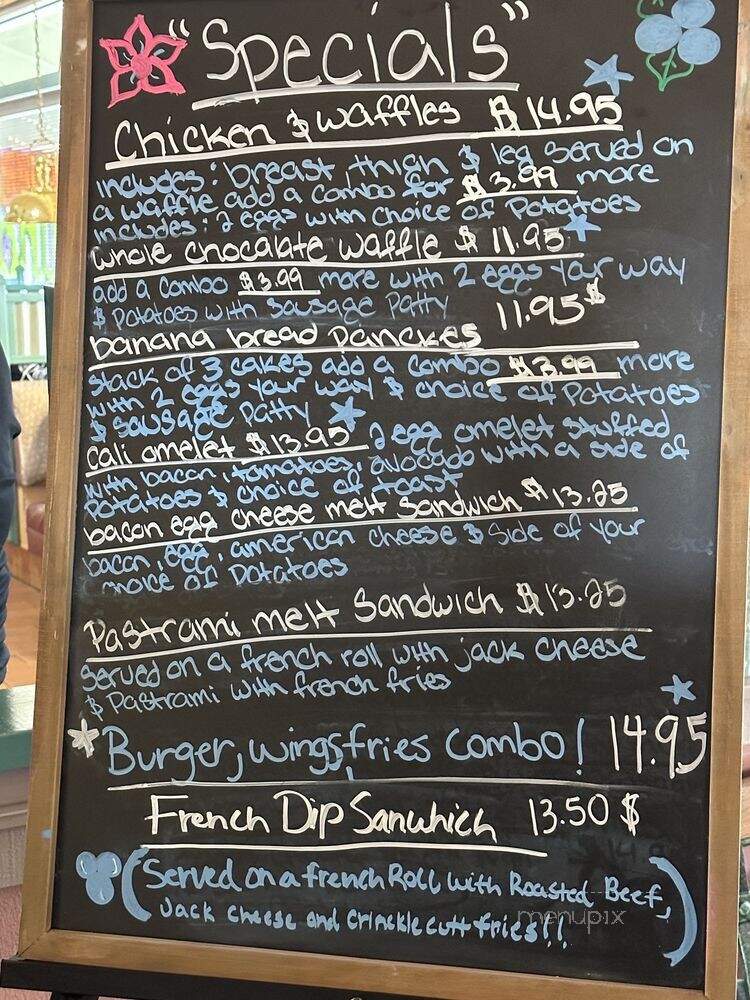 "Specials"
Chicken & waffles $14.95
includes: breast thigh & leg served on
a waffle add a combo for $3.99 more
includes: 2 eggs with choice of Potatoes
whole chocalate waffle $11.95
add a combo $3.99 more with 2 eggs your way
& Potatoes with sausage Patty 11.95$
banana bread pances
stack of 3 cakes add a combo $3.99 more
with 2 eggs your way & choice of Potatoes
& sausage Patty
cali omelet $13.95 2 egg omelet stuffed
with bacon, tomatoes, avocado with a side of
Potatoes & choice of toast
bacon egg cheese melt sandwich $13.25
bacon, egg, american cheese & side of your
choice of Potatoes
Pastrami melt Sandwich $13.25
Served on a french roll with jack cheese
& Pastrami with french fries
*Burger, wings, fries combo! 14.95
French Dip Sanwhich 13.50 $
(Served on a french Roll with Roasted Beef,
Jack cheese and crincklecutt fries!!)
menupix